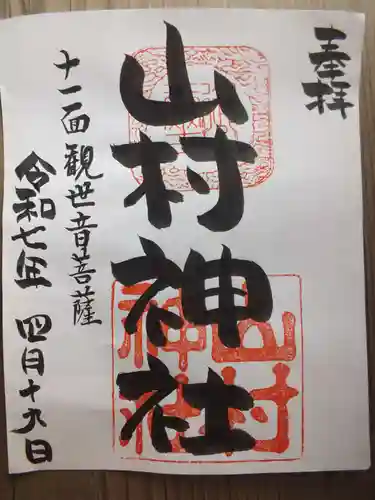 奉拝
山村神社
山村
神社
十一面観世音菩薩
令和七年 四月十九日